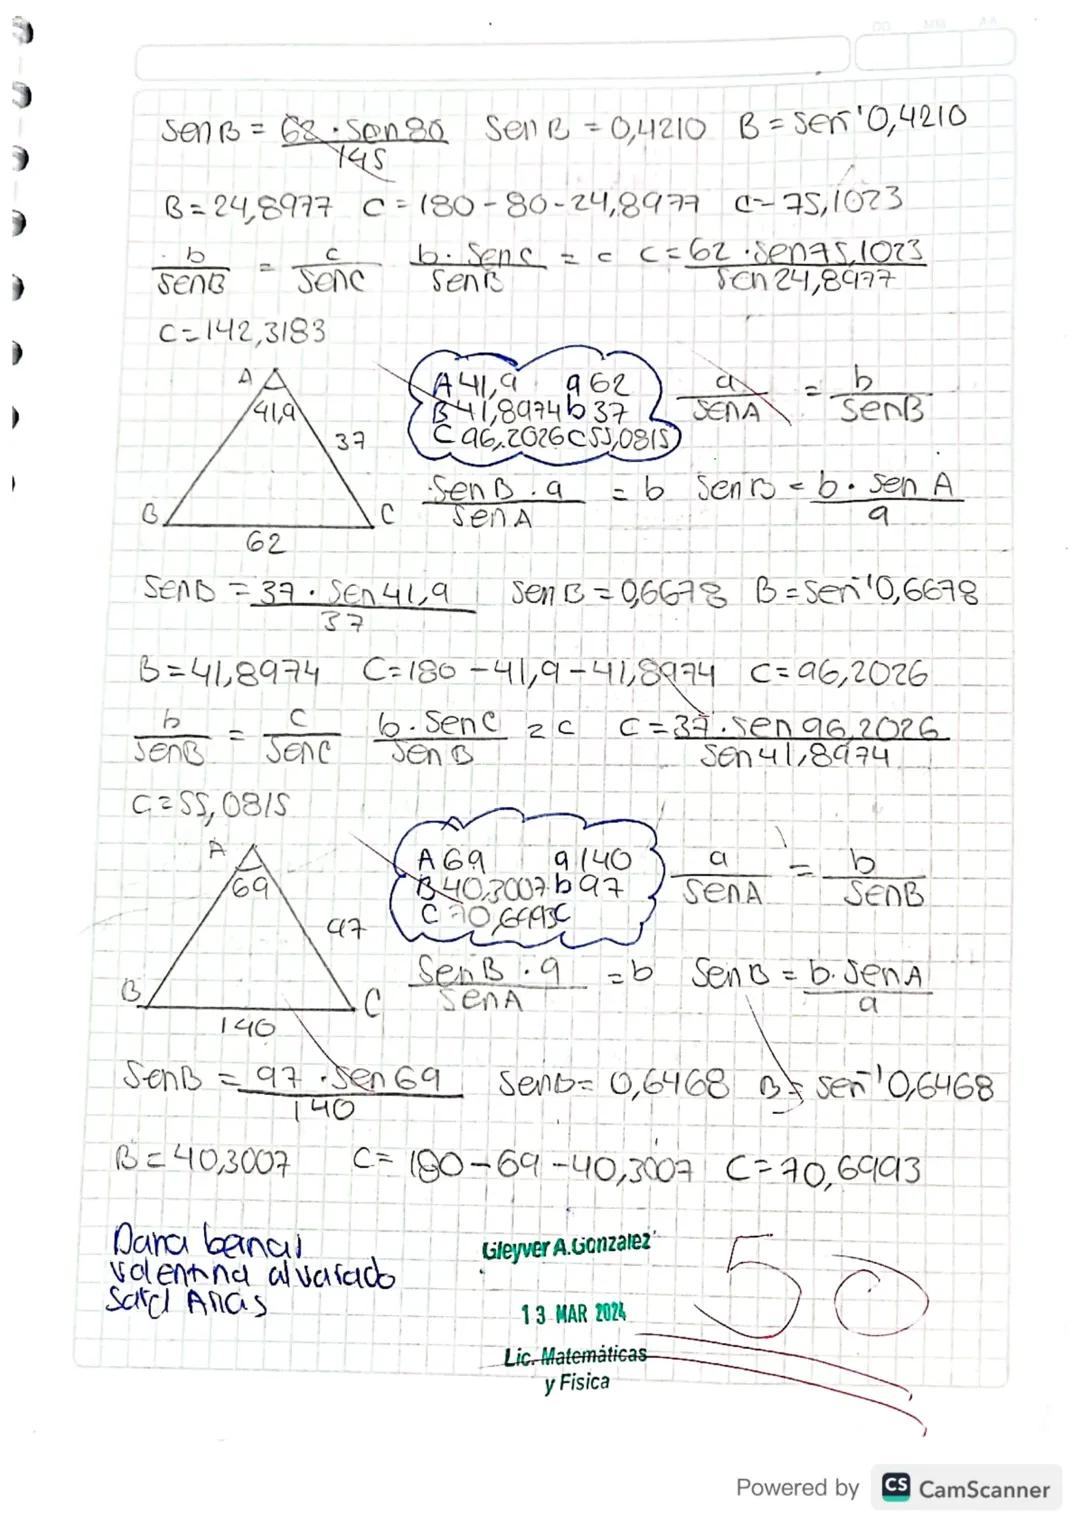 DD MM AA
SenB = 62 · Sen 80 / 145 Sen B = 0,4210 B = Sen⁻¹ 0,4210
B = 24,8977 C = 180 - 80 - 24,8977 C = 75,1023
b / SenB = c / SenC b · Sen C / Sen B = c C = 62 · Sen 75,1023 / Sen 24,8977
C = 142,3183
A 41,9 a 62
B 41,8974 b 37
C 96,2026 C 55,0815
a / SenA = b / SenB
A
41,9
37
B C
62
Sen B · a / Sen A = b Sen B = b · Sen A / a
SenB = 37 · Sen 41,9 / 37 Sen B = 0,6678 B = Sen⁻¹ 0,6678
B = 41,8974 C = 180 - 41,9 - 41,8974 C = 96,2026
b / SenB = c / SenC b · Sen C / Sen B = c C = 37 · Sen 96,2026 / Sen 41,8974
C = 55,0815
A 69 a 140
B 40,3007 b 97
C 70,6993 C
a / SenA = b / SenB
A
69
97
B C
140
Sen B · a / Sen A = b Sen B = b · Sen A / a
SenB = 97 · Sen 69 / 140 SenB = 0,6468 B = Sen⁻¹ 0,6468
B = 40,3007 C = 180 - 69 - 40,3007 C = 70,6993
Dana
valentina alvarado
Sara Arias
Gleyver A. Gonzalez
13 MAR 2024
Lic. Matemáticas
y Fisica
50
Powered by CS CamScanner